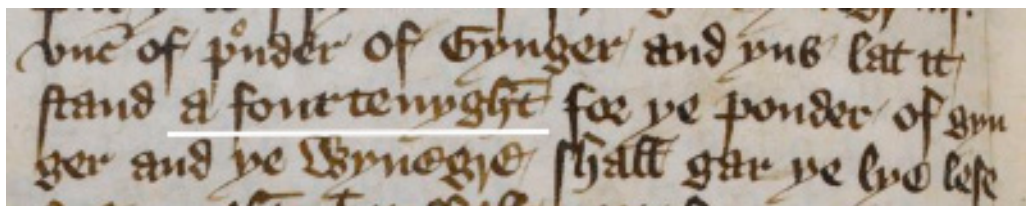 vnc̄ of poudͤr of Gynger and yus lat it
stand a fourtenyght for ye pouder of gyn
ger and ye Wynegre shall gar ye lye lese